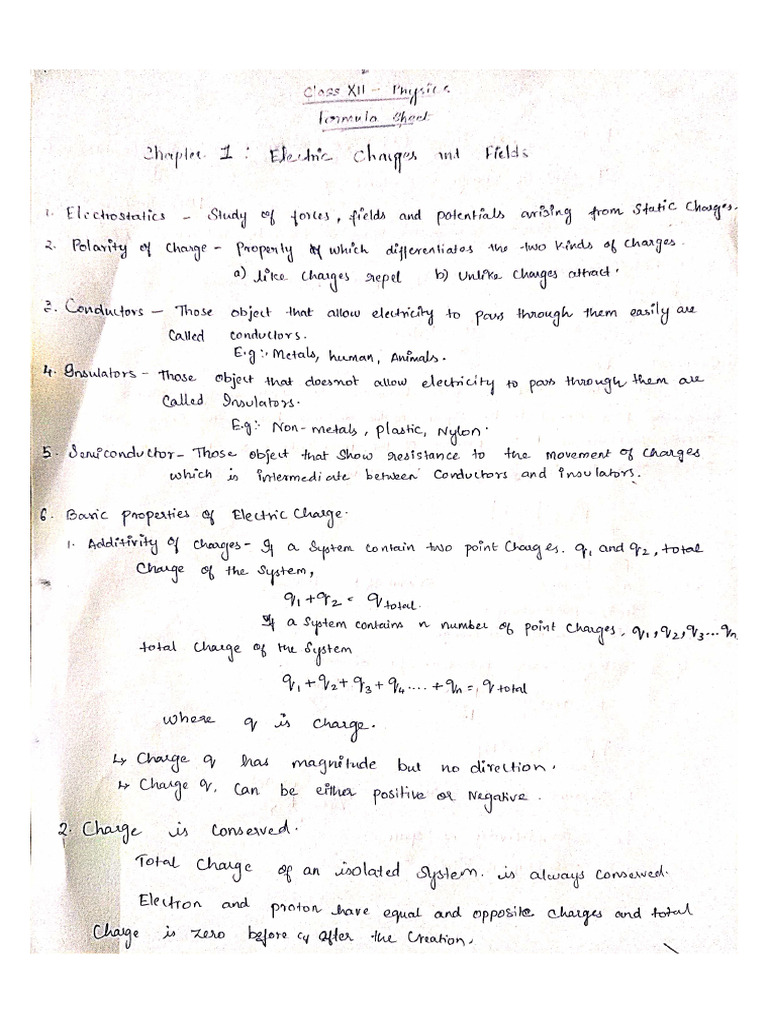 Class XII - Physics
Formula Sheet
Chapter 1 : Electric Charges and Fields
1. Electrostatics - Study of forces, fields and potentials arising from Static Charges.
2. Polarity of Charge - Property of which differentiates the two kinds of charges.
a) like charges repel b) Unlike charges attract.
3. Conductors - Those object that allow electricity to pass through them easily are
Called conductors.
E.g:- Metals, human, Animals.
4. Insulators - Those object that doesnot allow electricity to pass through them are
Called Insulators.
E.g:- Non-metals, plastic, Nylon.
5. Semiconductor - Those object that show resistance to the movement of charges
which is intermediate between Conductors and insulators.
6. Basic properties of Electric Charge.
1. Additivity of Charges - If a System contain two point Charges. q1 and q2, total
Charge of the System,
q1 + q2 = q total.
If a System contains n number of point Charges, q1, q2, q3...qn
total Charge of the System
q1 + q2 + q3 + q4 .... + qn = q total
where q is charge.
↳ Charge q has magnitude but no direction.
↳ Charge q. Can be either positive or Negative.
2. Charge is conserved.
Total Charge of an isolated System. is always conserved.
Electron and proton have equal and opposite charges and total
Charge is zero before after the Creation.